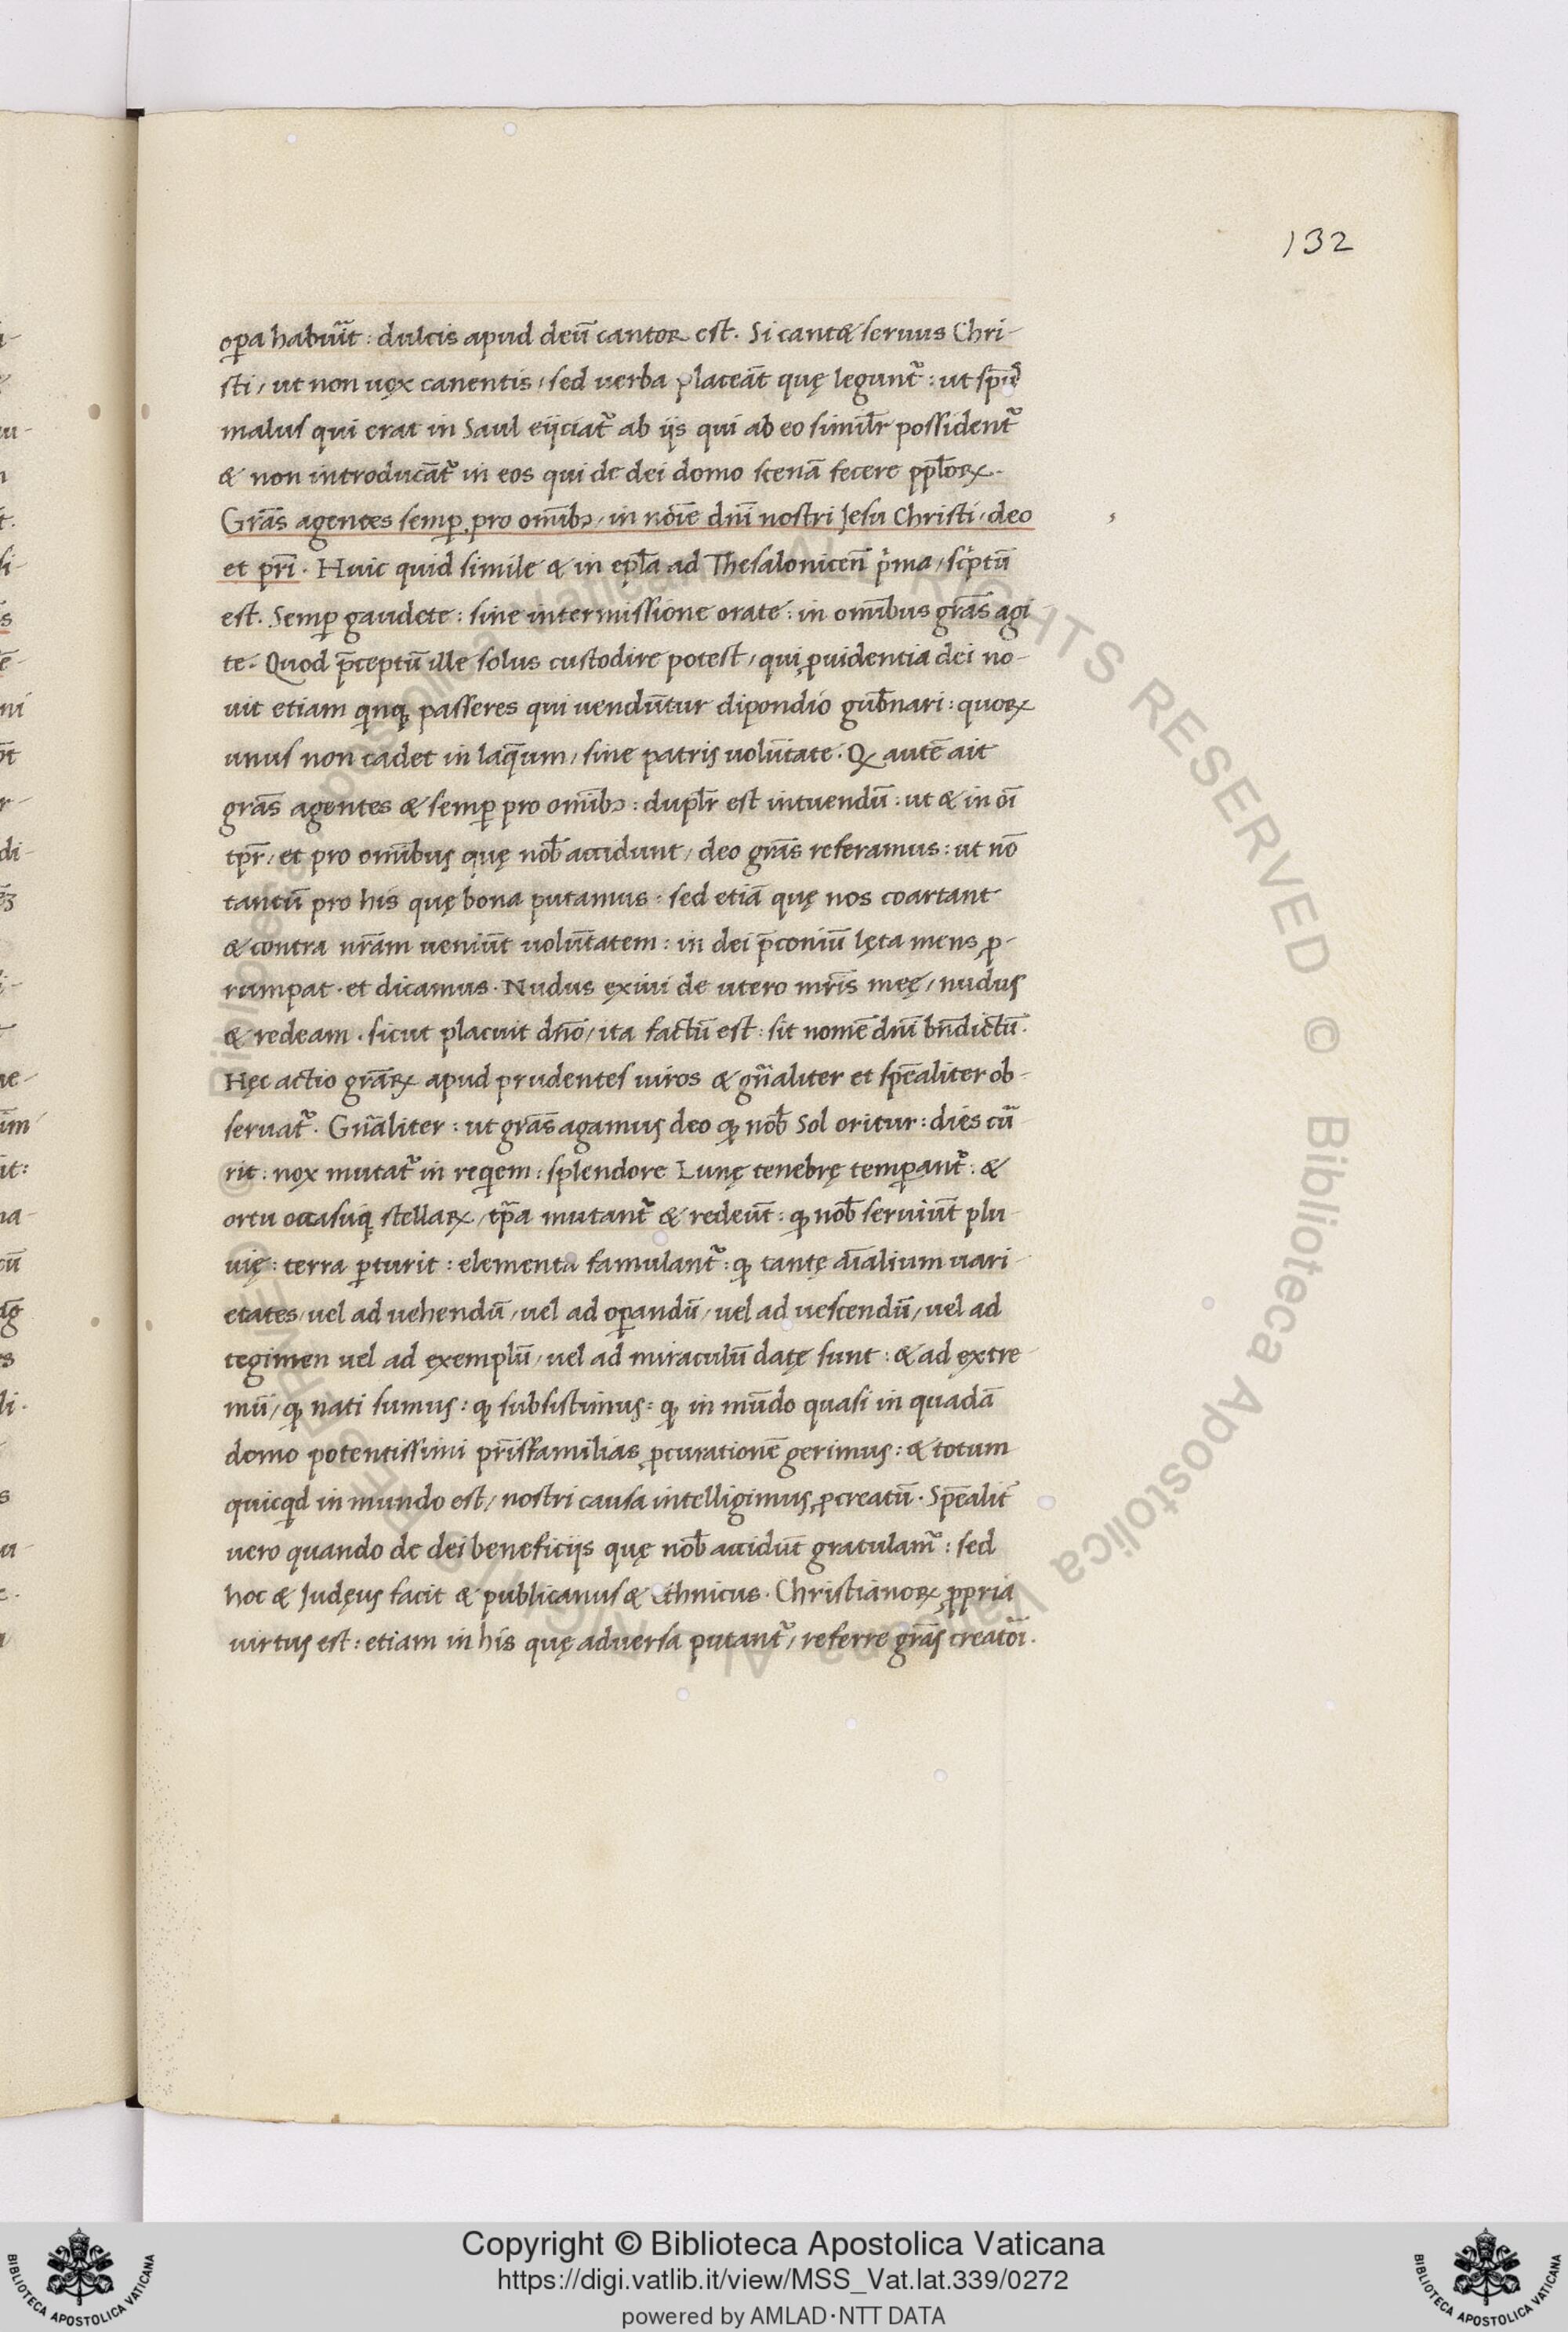 132
oꝑa habuīt : dulcis apud deū cantor est. Si cantet seruus Chri-
sti / ut non uox canentis / sed uerba placeāt quę leguntᷣ : ut sp̄ūs
malus qui erat in Saul eijciatᷣ ab ijs qui ab eo simil̄r possidentᷣ
& non introducātᷣ in eos qui de dei domo scenā fecere pp̄lorꝝ.
Grās agentes semꝑ pro omībꝫ / in noīe dnī nostri Jesu Christi / deo
et prī. Huic quid simile & in epl̄a ad Thesalonicen̄ pͥma / scͥptū
est. Semꝑ gaudete : sine intermissione orate : in omībus grās agi
te. Quod p̄ceptū ille solus custodire potest / qui ꝓuidentia dei no-
uit etiam qͥnqꝫ passeres qui uendūtur dipondio gub̄nari : quorꝝ
unus non cadet in laq̄um / sine patris uolūtate. Qꝫ autē ait
grās agentes & semꝑ pro omībꝫ : dupl̄r est intuendū : ut & in oī
tp̄r / et pro omībus quę nob̄ accidunt / deo grās referamus : ut nō
tantū pro his quę bona putamus : sed etiā quę nos coartant
& contra nr̄am ueniūt uolūtatem : in dei p̄coniū lęta mens ꝓ-
rumpat. et dicamus. Nudus exiui de utero mr̄is meę / nudus
& redeam. sicut placuit dn̄o / ita factū est : sit nomē dnī bn̄dictū.
Hęc actio grārꝝ apud prudentes uiros & gn̄aliter et spēaliter ob-
seruatᷣ. Gn̄aliter : ut grās agamus deo qꝫ nob̄ Sol oritur : dies cū
rit : nox mutatᷣ in reqͥem : splendore Lunę tenebrę temꝑantᷣ : &
ortu occasuqꝫ stellarꝝ / tp̄a mutantᷣ & redeūt : qꝫ nob̄ seruiūt plu
uię : terra ꝑturit : elementa famulantᷣ : qꝫ tantę aīalium uari-
etates / uel ad uehendū / uel ad oꝑandū / uel ad uescendū / uel ad
tegimen uel ad exemplū / uel ad miraculū datę sunt : & ad extre-
mū / qꝫ nati sumus : qꝫ subsistimus : qꝫ in mūdo quasi in quadā
domo potentissimi pr̄isfamilias ꝓcurationē gerimus : & totum
quicqͥd in mundo est / nostri causa intelligimus ꝓcreatū. Spēalit᷑
uero quando de dei beneficijs quę nob̄ accidūt gratulamᷣ : sed
hoc & Judęus facit & publicanus & ethnicus. Christianorꝝ ꝓpria
uirtus est : etiam in his quę aduersa putantᷣ / referre grās creatōi.
Copyright © Biblioteca Apostolica Vaticana
https://digi.vatlib.it/view/MSS_Vat.lat.339/0272
powered by AMLAD·NTT DATA